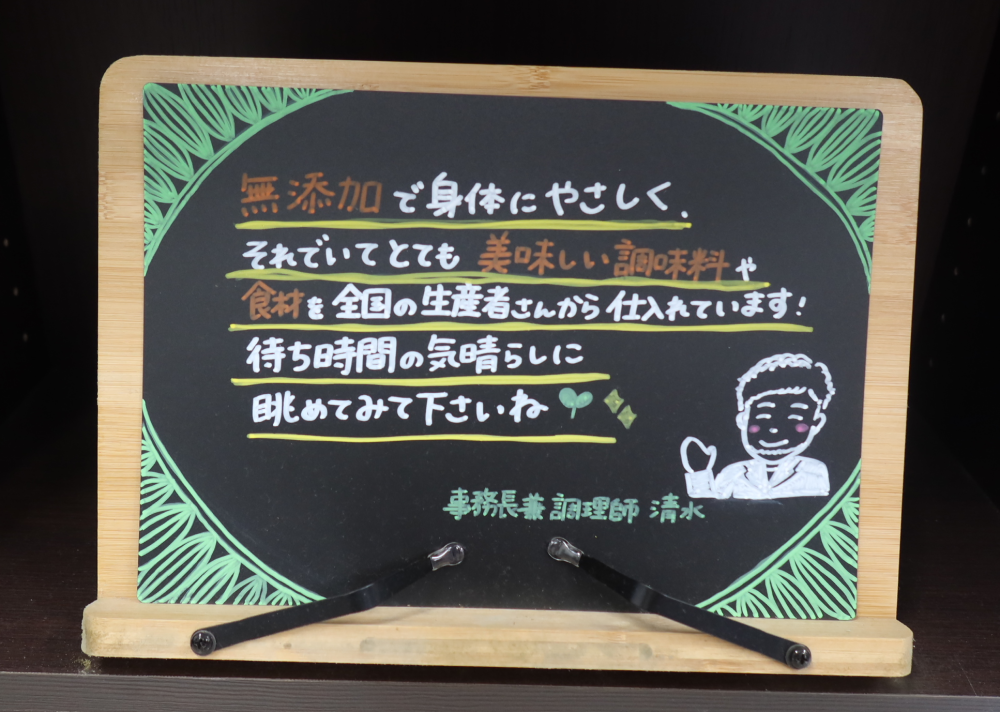 無添加で身体にやさしく、
それでいてとても美味しい調味料や
食材を全国の生産者さんから仕入れています!
待ち時間の気晴らしに
眺めてみて下さいね
事務長兼調理師 清水